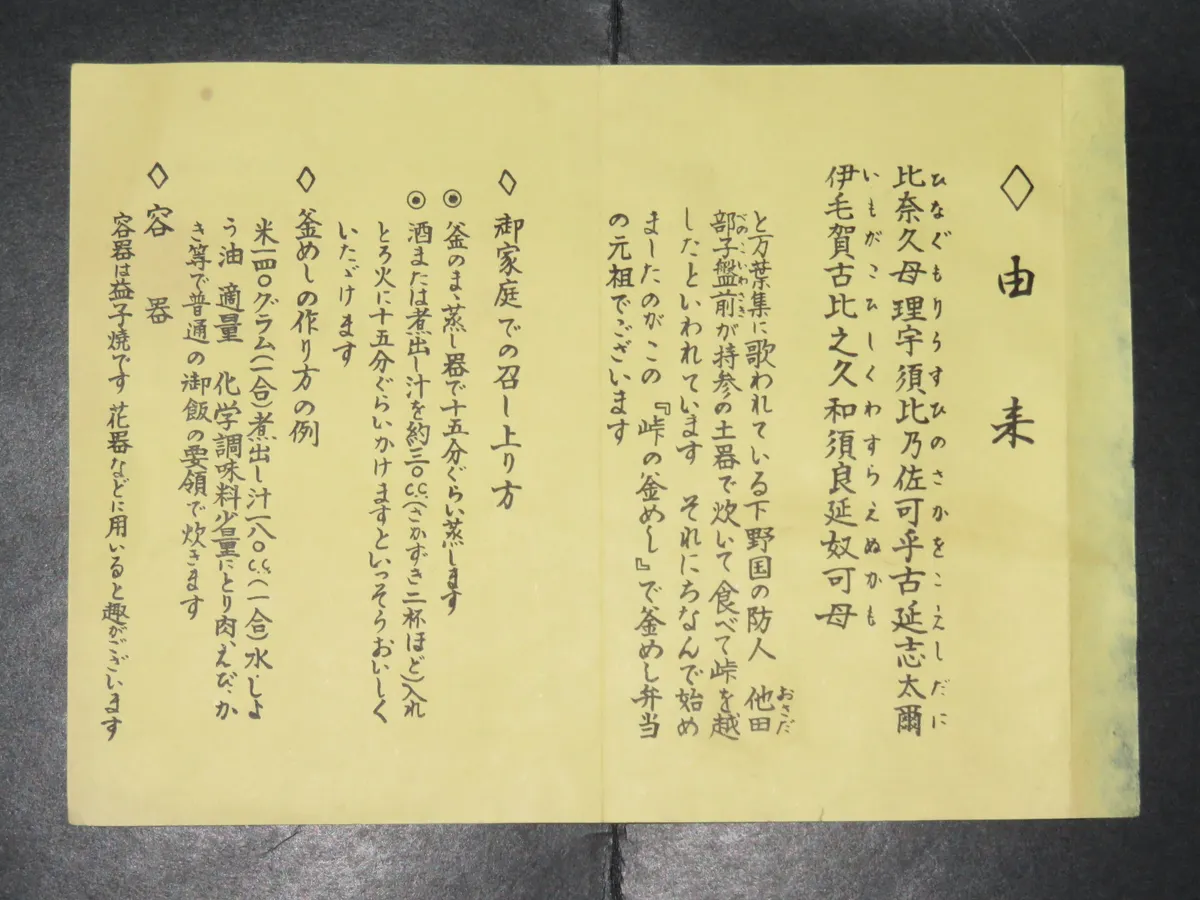 ◇由来
比奈久母理宇須比乃佐可乎古延志太爾
ひなぐもりうすひのさかをこえしだに
伊毛賀古比之久和須良延奴可母
いもがこひしくわすらえぬかも
と万葉集に歌われている下野国の防人 他田
おさだ
部子盤前が持参の土器で炊いて食べて峠を越
べのこいわさき
したといわれています それにちなんで始め
ましたのがこの『峠の釜めし』で釜めし弁当
の元祖でございます
◇御家庭での召し上り方
◉釜のまゝ蒸し器で十五分ぐらい蒸します
◉酒または煮出し汁を約三〇c.c.(さかずき二杯ほど)入れ
とろ火に十五分ぐらいかけますといっそうおいしく
いたゞけます
◇釜めしの作り方の例
米一四〇グラム(一合)煮出し汁一八〇c.c.(一合)水しよ
う油 適量 化学調味料少量にとり肉、えび、か
き等で普通の御飯の要領で炊きます
◇容器
容器は益子焼です 花器などに用いると趣がございます